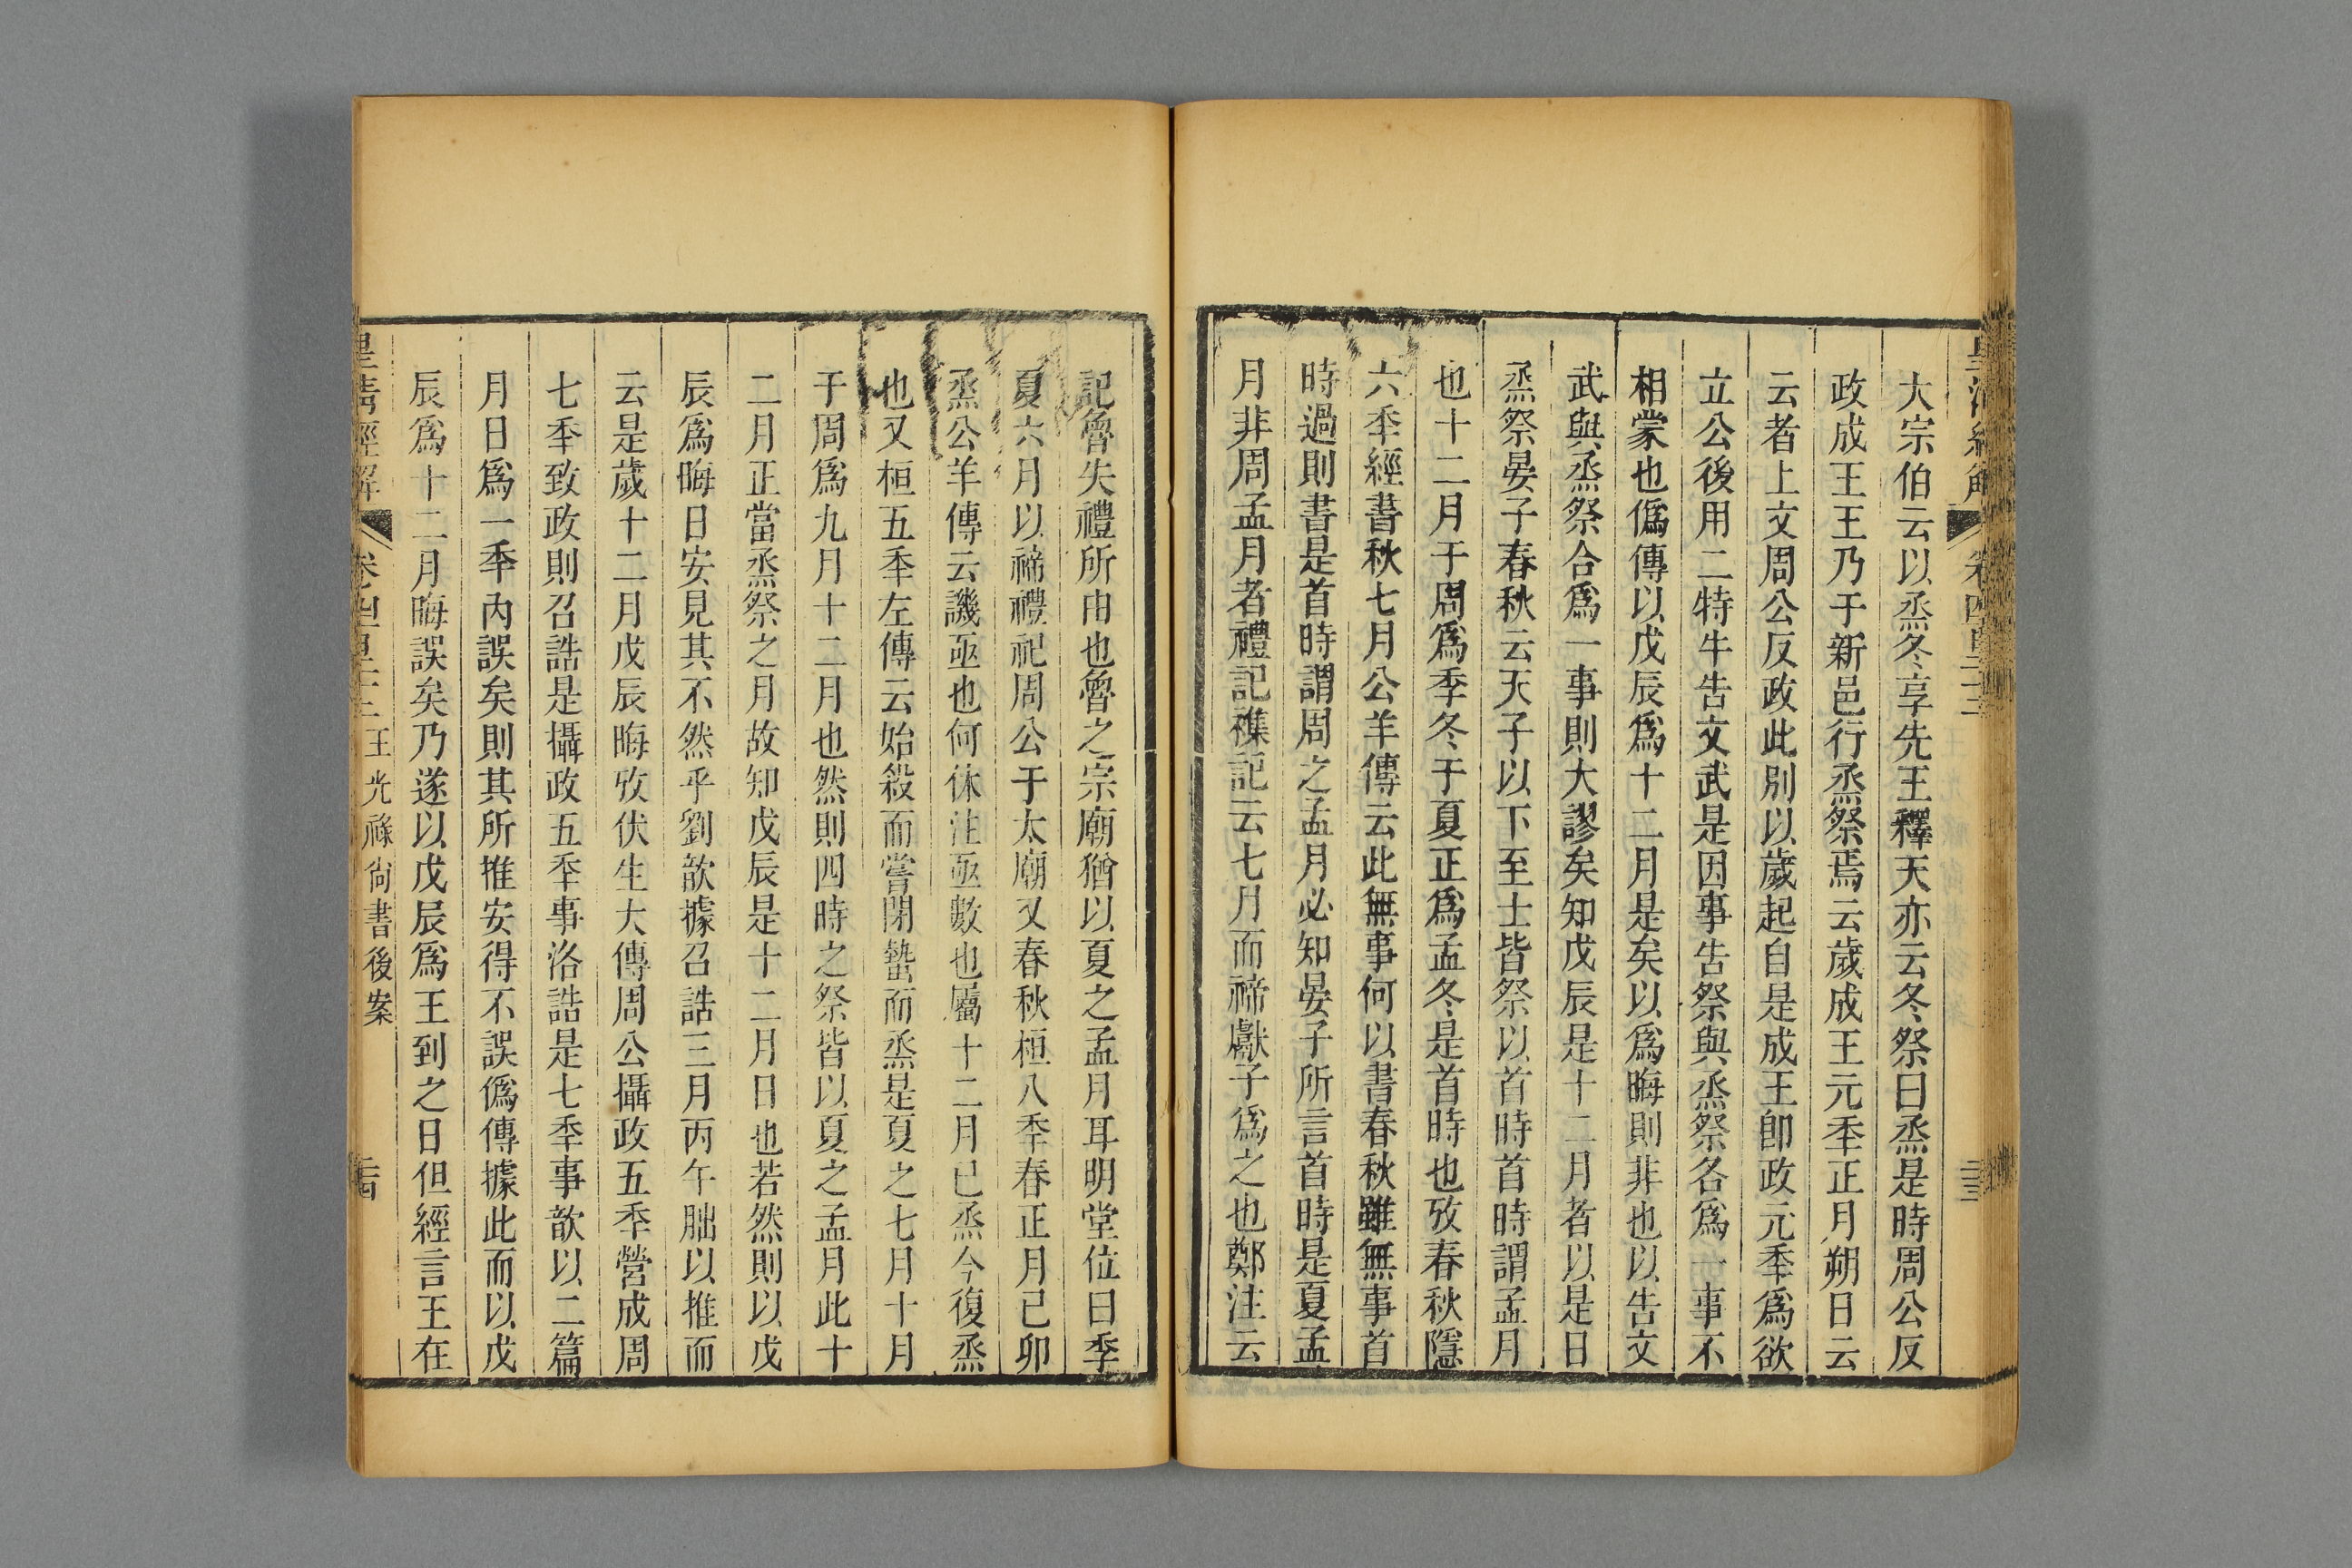 大宗伯云以烝冬享先王釋天亦云冬祭曰烝是時周公反
政成王王乃于新邑行烝祭焉云歲成王元秊正月朔日云
云者上文周公反政此別以歲起自是成王卽政元秊爲欲
立公後用二特牛告文武是因事告祭與烝祭各爲一事不
相蒙也僞傳以戊辰爲十二月是矣以爲晦則非也以告文
武與烝祭合爲一事則大謬矣知戊辰是十二月者以是日
烝祭晏子春秋云天子以下至士皆祭以首時首時謂孟月
也十二月于周爲季冬于夏正爲孟冬是首時也攷春秋隱
六秊經書秋七月公羊傳云此無事何以書春秋雖無事首
時過則書是首時謂周之孟月必知晏子所言首時是夏孟
月非周孟月者禮記襍記云七月而禘獻子爲之也鄭注云
記魯失禮所由也魯之宗廟猶以夏之孟月耳明堂位曰季
夏六月以禘禮祀周公于太廟又春秋桓八秊春正月己卯
烝公羊傳云譏亟也何休注亟數也屬十二月已烝今復烝
也又桓五秊左傳云始殺而嘗閉蟄而烝是夏之七月十月
于周爲九月十二月也然則四時之祭皆以夏之孟月此十
二月正當烝祭之月故知戊辰是十二月日也若然則以戊
辰爲晦日安見其不然乎劉歆據召誥三月丙午朏以推而
云是歲十二月戊辰晦攷伏生大傳周公攝政五秊營成周
七秊致政則召誥是攝政五秊事洛誥是七秊事歆以二篇
月日爲一秊內誤矣則其所推安得不誤僞傳據此而以戊
辰爲十二月晦誤矣乃遂以戊辰爲王到之日但經言王在
皇清經解 王光祿尙書後案